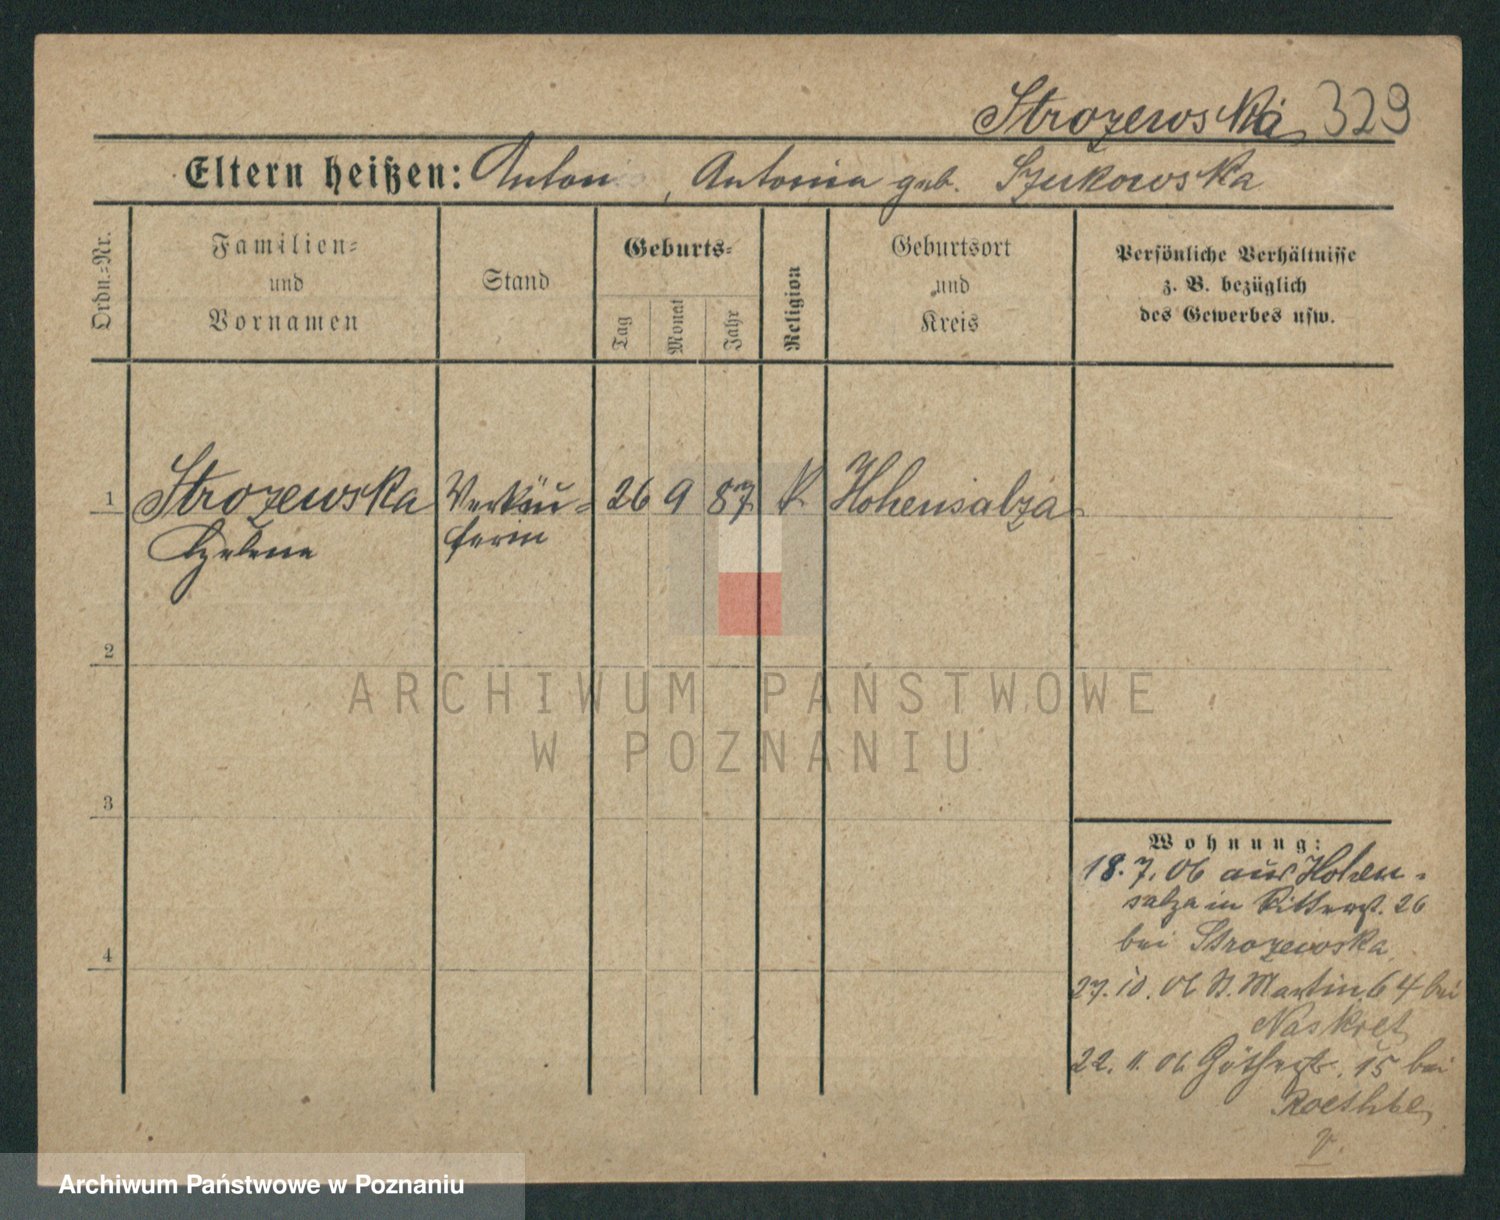 Strozewska 329
Eltern heißen: Anton, Antonia geb. Szukowska
Ordn.-Nr.
Familien- und Vornamen
Stand
Geburts-
Tag
Monat
Jahr
Religion
Geburtsort und Kreis
Persönliche Verhältnisse
z. B. bezüglich
des Gewerbes usw.
1 Strozewska Verkäu- 26 9 87 k Hohensalza
Helene ferin
2
ARCHIWUM PAŃSTWOWE
W POZNANIU
3
Wohnung:
18. 7. 06 aus Hohen-
salza in Ritterst. 26
bei Strozewska
4
27. 10. 06 St. Martin 64 bei
Naskret
22. 11. 06 15 bei
v.
Archiwum Państwowe w Poznaniu